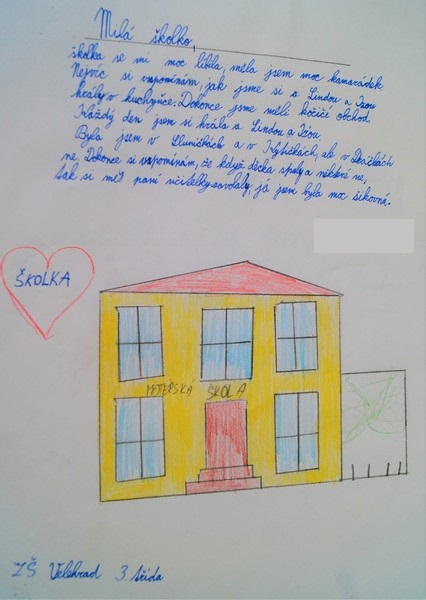 Milá školko,
školka se mi moc líbila, měla jsem moc kamarádek
Nejvíc si vzpomínám, jak jsme si s Lindou a Izou
hrály v kuchyňce. Dokonce jsme měli kočičí obchod.
Každý den jsem si hrála s Lindou a Izou
Byla jsem v Sluníčkách a v Kytičkách, ale v
ne. Dokonce si vzpomínám, že když děcka spaly a některé ne,
tak si mě paní učitelky zavolaly, já jsem byla moc šikovná.
ŠKOLKA
MATEŘSKÁ ŠKOLA
ZŠ Velehrad 3. třída